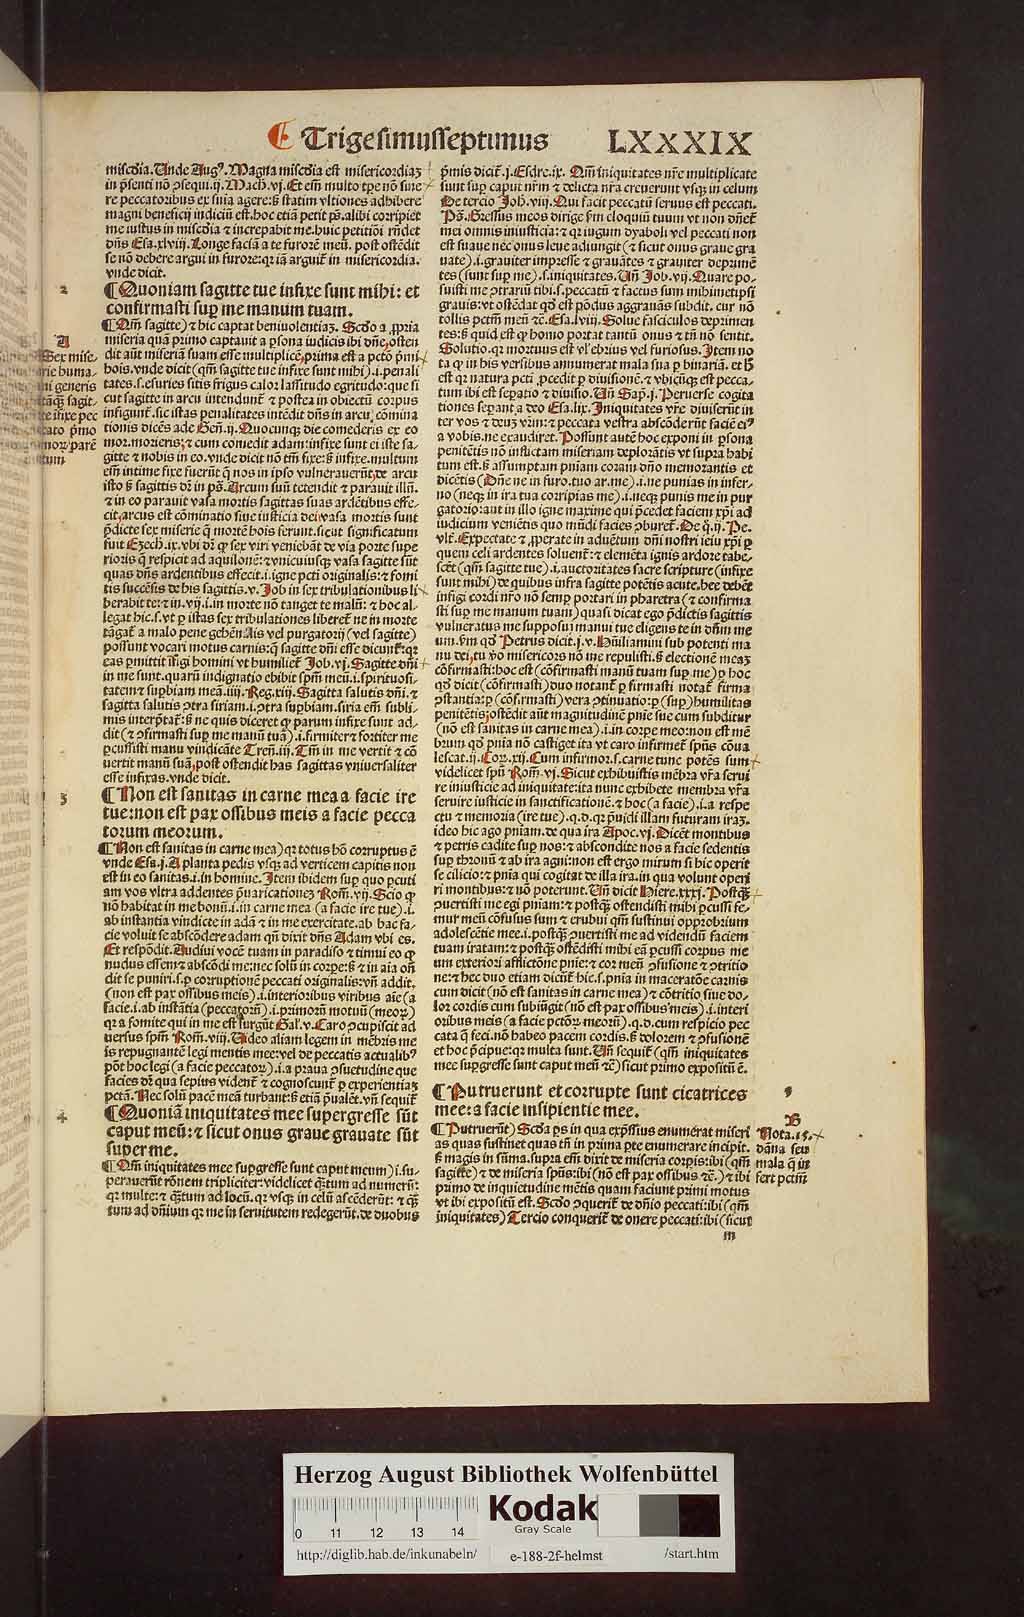 Trigesimusseptimus LXXXIX
miscḋia. Unde Augꝰ. Magna miscḋia est misericordiaꝫ
in p̄senti nō ꝯsequi. ij. Mach. vj. Et em̄ multo tp̄e nō sine
re peccatoribus ex sn̄ia agere: sꝫ statim vltiones adhibere
magni beneficij indiciū est. hoc etiā petit ꝓs. alibi corripiet
me iustus in miscḋia ⁊ increpabit me. huic petitiōi rn̄det
dn̄s Esa. xlviij. Longe faciā a te furorē meū. post ostēdit
se nō debere argui in furore: qꝛ iā arguit̄ in misericordia.
vnde dicit.
2
¶ Quoniam sagitte tue infixe sunt mihi: et
confirmasti suꝑ me manum tuam.
A
Sex mise
rie huma
ni generis
sagit
te infixe pec
cato pͥmo
parē
tum
¶ Qm̄ sagitte) ⁊ hic captat beniuolentiaꝫ. Scḋo a ꝓpria
miseria quā primo captauit a ꝑsona iudicis ibi dn̄e, osten
dit aūt miseriā suam esse multiplicē, prima est a pctō pͥmi
hoīs. vnde dicit (qm̄ sagitte tue infixe sunt mihi) .i. penali
tates. s. esuries sitis frigus calor lassitudo egritudo: que si
cut sagitte in arcu intendunt̄ ⁊ postea in obiectū corpus
infigunt̄. sic istas penalitates intēdit dn̄s in arcu, cōmina
tionis dicēs ade Gen̄. ij. Quocunqꝫ die comederis ex eo
mor. morieris: ⁊ cum comedit adam: infixe sunt ei iste sa
gitte ⁊ nobis in eo. vnde dicit nō tm̄ fixe: sꝫ infixe. multum
em̄ intime fixe fuerūt q̄ nos in ipso vulnerauerūt, de arcu
isto ⁊ sagittis dr̄ in ps̄. Arcum suū tetendit ⁊ parauit illū.
⁊ in eo parauit vasa mortis sagittas suas ardētibus effe
cit, arcus est cōminatio siue iusticia dei, vasa mortis sunt
p̄dicte sex miserie q̄ mortē hoīs ferunt. sicut significatum
fuit Ezech. ix. vbi dr̄ ꝙ sex viri veniebāt de via porte supe
rioris q̄ respicit ad aquilonē: ⁊ vnicuiusqꝫ vasa sagitte sūt
quas dn̄s ardentibus effecit. i. igne pcti originalis: ⁊ fomi
tis succēsis de his sagittis. v. Job in sex tribulationibus li
berabit te: ⁊ in. vij. i. in morte nō tanget te malū: ⁊ hoc al
legat hic. s. vt ꝑ istas sex tribulationes liberet̄ ne in morte
tāgat̄ a malo pene gehēnalis vel purgatorij (vel sagitte)
possunt vocari motus carnis: q̄ sagitte dn̄i esse dicunt̄: qꝛ
eas ꝑmittit īfigi homini vt humiliet̄ Job. vj. Sagitte dn̄i
in me sunt. quarū indignatio ebibit spm̄ meū. i. spirituosi
tatem ⁊ suꝑbiam meā. iiij. Reg. xiij. Sagitta salutis dn̄i. ⁊
sagitta salutis ꝯtra siriam. i. ꝯtra suꝑbiam. siria em̄ subli
mis interp̄tat̄: sꝫ ne quis diceret ꝙ parum infixe sunt ad
dit (⁊ ꝯfirmasti suꝑ me manū tuā) .i. firmiter ⁊ fortiter me
ꝑcussisti manu vindicāte Tren̄. iij. Tm̄ in me vertit ⁊ cō
uertit manū suā, post ostendit has sagittas vniuersaliter
esse infixas. vnde dicit.
3
¶ Non est sanitas in carne mea a facie ire
tue: non est pax ossibus meis a facie pecca
torum meorum.
¶ Non est sanitas in carne mea) qꝛ totus hō corruptus ē
vnde Esa. j. A planta pedis vsqꝫ ad verticem capitis non
est in eo sanitas. i. in homine. Item ibidem suꝑ quo ꝑcuti
am vos vltra addentes p̄uaricationeꝫ Rom̄. vij. Scio ꝙ
nō habitat in me bonū. i. in carne mea (a facie ire tue) .i.
ab instantia vindicte in adā ⁊ in me exercitate. ab hac fa
cie voluit se abscōdere adam qn̄ dixit dn̄s Adam vbi es.
Et respōdit. Audiui vocē tuam in paradiso ⁊ timui eo ꝙ
nudus essem ⁊ abscōdi me: nec solū in corpe: sꝫ ⁊ in aīa on̄
dit se puniri. s. ꝑ corruptionē peccati originalis: vn̄ addit.
(non est pax ossibus meis) .i. interioribus viribus aīe (a
facie. i. ab instātia (peccatorū) .i. primorū motuū (meoꝝ)
qꝛ a fomite qui in me est surgūt Gal̄. v. Caro ꝯcupiscit ad
uersus spm̄ Rom̄. viij. Video aliam legem in mēbris me
is repugnantē legi mentis mee: vel de peccatis actualibꝰ
pōt hoc legi (a facie peccatoꝝ) .i. a praua ꝯsuetudine que
facies dr̄ qua sepius vident̄ ⁊ cognoscunt̄ ꝑ experientiaꝫ
pctā. Nec solū pacē meā turbant: sꝫ etiā p̄ualēt. vn̄ sequit̄
4
¶ Quoniā iniquitates mee supergresse sūt
caput meū: ⁊ sicut onus graue grauate sūt
super me.
¶ Qm̄ iniquitates mee suꝑgresse sunt caput meum) i. su
perauerūt rōnem tripliciter: videlicet q̄ntum ad numerū:
qꝛ multe: ⁊ q̄ntum ad locū. qꝛ vsqꝫ in celū ascēderūt: ⁊ q̄n
tum ad dn̄ium qꝛ me in seruitutem redegerūt. de duobus
pͥmis dicit̄. j. Esdre. ix. Qm̄ iniquitates nr̄e multiplicate
sunt suꝑ caput nr̄m ⁊ delicta nr̄a creuerunt vsqꝫ in celum
De tercio Joh. viij. Qui facit peccatū seruus est peccati.
Ps̄. Gressus meos dirige ẜm eloquiū tuum vt non dn̄et̄
mei omnis iniusticia: ⁊ qꝛ iugum dyaboli vel peccati non
est suaue nec onus leue adiungit (⁊ sicut onus graue gra
uate) .i. grauiter impresse ⁊ grauātes ⁊ grauiter deprimē
tes (sunt suꝑ me) .s. iniquitates. Un̄ Job. vij. Quare po
suisti me ꝯtrariū tibi. s. peccatū ⁊ factus sum mihimetipsi
grauis: vt ostēdat qḋ est pōdus aggrauās subdit. cur nō
tollis pctm̄ meū ⁊c̄. Esa. lviij. Solue fasciculos deprimen
tes: sꝫ quid est ꝙ homo portat tantū onus ⁊ tn̄ nō sentit.
Solutio. qꝛ mortuus est vl̓ ebrius vel furiosus. Item no
ta ꝙ in his versibus annumerat mala sua ꝑ binariā. et h̄
est qꝛ natura pcti ꝓcedit ꝑ diuisionē. ⁊ vbicūqꝫ est pecca
tum ibi est seꝑatio ⁊ diuisio. Un̄ Sap̄. j. Peruerse cogita
tiones seꝑant a deo Esa. lix. Iniquitates vr̄e diuiserūt in
ter vos ⁊ deuꝫ vr̄m: ⁊ peccata vestra abscōderūt faciē eiꝰ
a vobis. ne exaudiret. Possunt autē hoc exponi in ꝑsona
penitētis nō inflictam miseriam deplorātis vt supra habi
tum est. sꝫ assumptam pn̄iam coram dn̄o memorantis et
dicētis (Dn̄e ne in furo. tuo ar. me) .i. ne punias in infer
no (neqꝫ in ira tua corripias me) .i. neqꝫ punis me in pur
gatorio: aut in illo igne maxime qui p̄cedet faciem xp̄i ad
iudicium veniētis quo mūdi facies ꝯburet̄. De q̄. ij. Pe.
vlt̄. Expectate ⁊ ꝓperate in aduētum dn̄i nostri ieiu xp̄i ꝑ
quem celi ardentes soluent̄: ⁊ elemēta ignis ardore tabe
scēt (qm̄ sagitte tue) .i. auctoritates sacre scripture (infixe
sunt mihi) de quibus infra sagitte potētis acute. hee debēt
infigi cordi nr̄o nō semꝑ portari in pharetra (⁊ confirma
sti suꝑ me manum tuam) quasi dicat ego p̄dictis sagittis
vulneratus me supposui manui tue eligens te in dn̄m me
um. ẜm qḋ Petrus dicit. j. v. Hūiliamini sub potenti ma
nu dei, tu v̓o misericors nō me repulisti. sꝫ electionē meaꝫ
cōfirmasti: hoc est (cōfirmasti manū tuam suꝑ me) ꝑ hoc
qḋ dicit (cōfirmasti) duo notant̄ ꝑ firmasti notat̄ firma
ꝯstantia: ꝑ (cōfirmasti) vera ꝯtinuatio: ꝑ (suꝑ) humilitas
penitētis, ostēdit aūt magnitudinē pn̄ie sue cum subditur
(nō est sanitas in carne mea) .i. in corpe meo: non est mē
brum qḋ pn̄ia nō castiget ita vt caro infirmet̄ spūs cōua
lescat. ij. Cor. xij. Cum infirmor. s. carne tunc potēs sum
videlicet spū Rom̄. vj. Sicut exhibuistis mēbra vr̄a serui
re iniusticie ad iniquitatē: ita nunc exhibete membra vr̄a
seruire iusticie in sanctificationē. ⁊ hoc (a facie) .i. a respe
ctu ⁊ memoria (ire tue) .q. d. qꝛ p̄uidi illam futuram iraꝫ.
ideo hic ago pn̄iam. de qua ira Apoc. vj. Dicēt montibus
⁊ petris cadite suꝑ nos: ⁊ abscondite nos a facie sedentis
sup thronū ⁊ ab ira agni: non est ergo mirum si hic operit
se cilicio: ⁊ pn̄ia qui cogitat de illa ira. in qua volunt operi
ri montibus: ⁊ nō poterunt. Un̄ dicit Hiere. xxxj. Postqꝫ
ꝯuertisti me egi pn̄iam: ⁊ postqꝫ ostendisti mihi ꝑcussi fe
mur meū cōfusus sum ⁊ erubui qm̄ sustinui opprobrium
adolescētie mee. i. postqꝫ ꝯuertisti me ad videndū faciem
tuam iratam: ⁊ postqꝫ ostēdisti mihi eā ꝑcussi corpus me
um exteriori afflictōne pn̄ie: ⁊ cor meū ꝯfusione ⁊ ꝯtritio
ne: ⁊ hec duo etiam dicūt̄ hic. s. pn̄ia in maceratōe carnis
cum dicit (nō est sanitas in carne mea) ⁊ cōtritio siue do
lor cordis cum subiūgit (nō est pax ossibus meis) .i. interi
oribus meis (a facie pctōꝝ meorū) .q. d. cum respicio pec
cata q̄ feci. nō habeo pacem cordis. sꝫ dolorem ⁊ ꝯfusionē
et hoc p̄cipue: qꝛ multa sunt. Un̄ sequit̄ (qm̄ iniquitates
mee suꝑgresse sunt caput meū ⁊c̄) sicut primo expositū ē.
¶ Putruerunt et corrupte sunt cicatrices
mee: a facie insipientie mee.
B
Nota. 15.
dāna seu
mala q̄ in
fert pctm̄
¶ Putruerūt) Scḋa ps̄ in qua exp̄ssius enumerat miseri
as quas sustinet quas tn̄ in prima ꝑte enumerare incipit.
sꝫ magis in sūma. supra em̄ dixit de miseria corpis: ibi (qm̄
sagitte) ⁊ de miseria spūs: ibi (nō est pax ossibus ⁊c̄.) ⁊ ibi
primo de inquietudine mētis quam faciunt primi motus
vt ibi expositū est. Scḋo ꝯquerit̄ de dn̄io peccati: ibi (qm̄
iniquitates) Tercio conquerit̄ de onere peccati: ibi (sicut
m
Herzog August Bibliothek Wolfenbüttel
0 11 12 13 14
Kodak
Gray Scale
http://diglib.hab.de/inkunabeln/ e-188-2f-helmst /start.htm